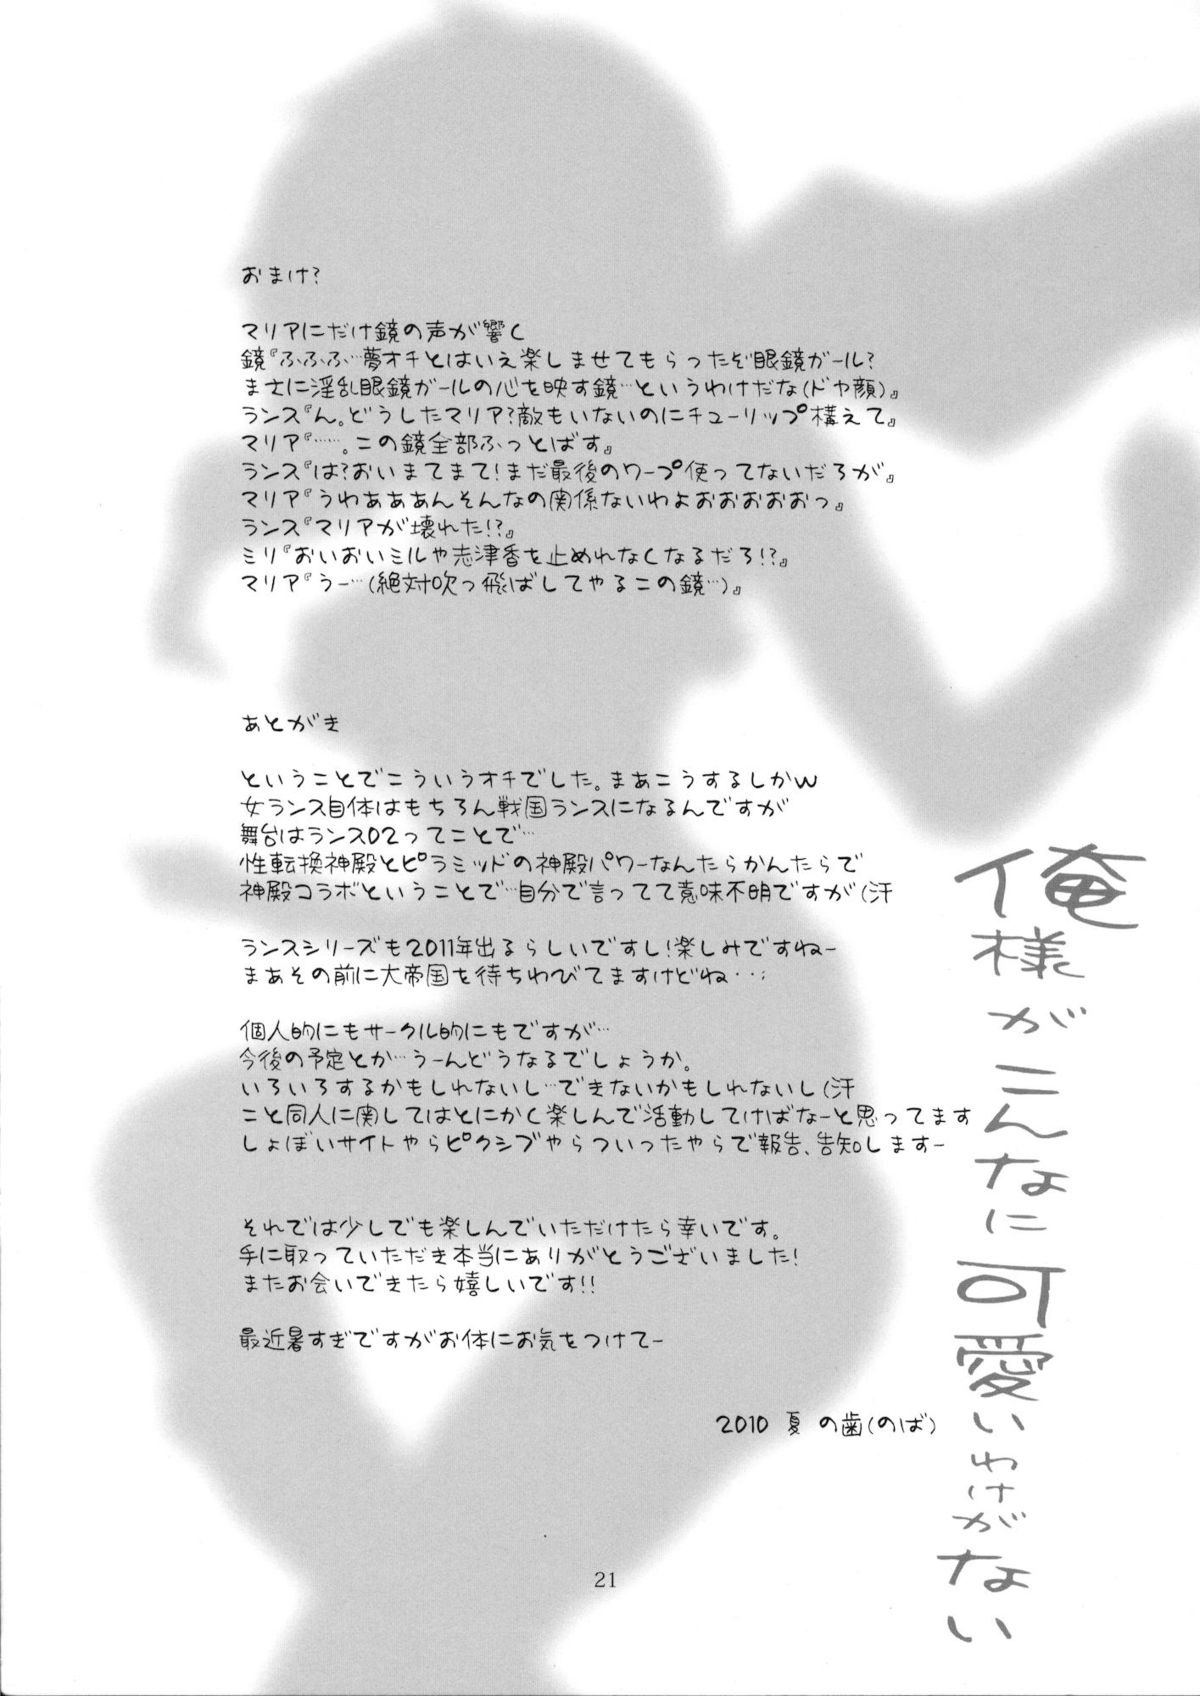 おまけ?
マリアにだけ鏡の声が響く
鏡『ふふふ…夢オチとはいえ楽しませてもらったぞ眼鏡ガール?
まさに淫乱眼鏡ガールの心を映す鏡…というわけだな(ドヤ顔)』
ランス『ん。どうしたマリア?敵もいないのにチューリップ構えて』
マリア『……。この鏡全部ふっとばす』
ランス『は?おいまてまて!まだ最後のワープ使ってないだろが』
マリア『うわあああんそんなの関係ないわよおおおおおっ』
ランス『マリアが壊れた!?』
ミリ『おいおいミルや志津香を止めれなくなるだろ!?』
マリア『うー…(絶対吹っ飛ばしてやるこの鏡…)』
あとがき
ということでこういうオチでした。まあこうするしかw
女ランス自体はもちろん戦国ランスになるんですが
舞台はランス02ってことで…
性転換神殿とピラミッドの神殿パワーなんたらかんたらで
神殿コラボということで…自分で言ってて意味不明ですが(汗
ランスシリーズも2011年出るらしいですし!楽しみですねー
まあその前に大帝国を待ちわびてますけどね・・・
個人的にもサークル的にもですが…
今後の予定とか…うーんどうなるでしょうか。
いろいろするかもしれないし…できないかもしれないし(汗
こと同人に関してはとにかく楽しんで活動してけばなーと思ってます
しょぼいサイトやらピクシブやらついったやらで報告、告知します-
それでは少しでも楽しんでいただけたら幸いです。
手に取っていただき本当にありがとうございました!
またお会いできたら嬉しいです!!
最近暑すぎですがお体にお気をつけて-
2010 夏 の歯(のば)
俺様がこんなに可愛いわけがない
21